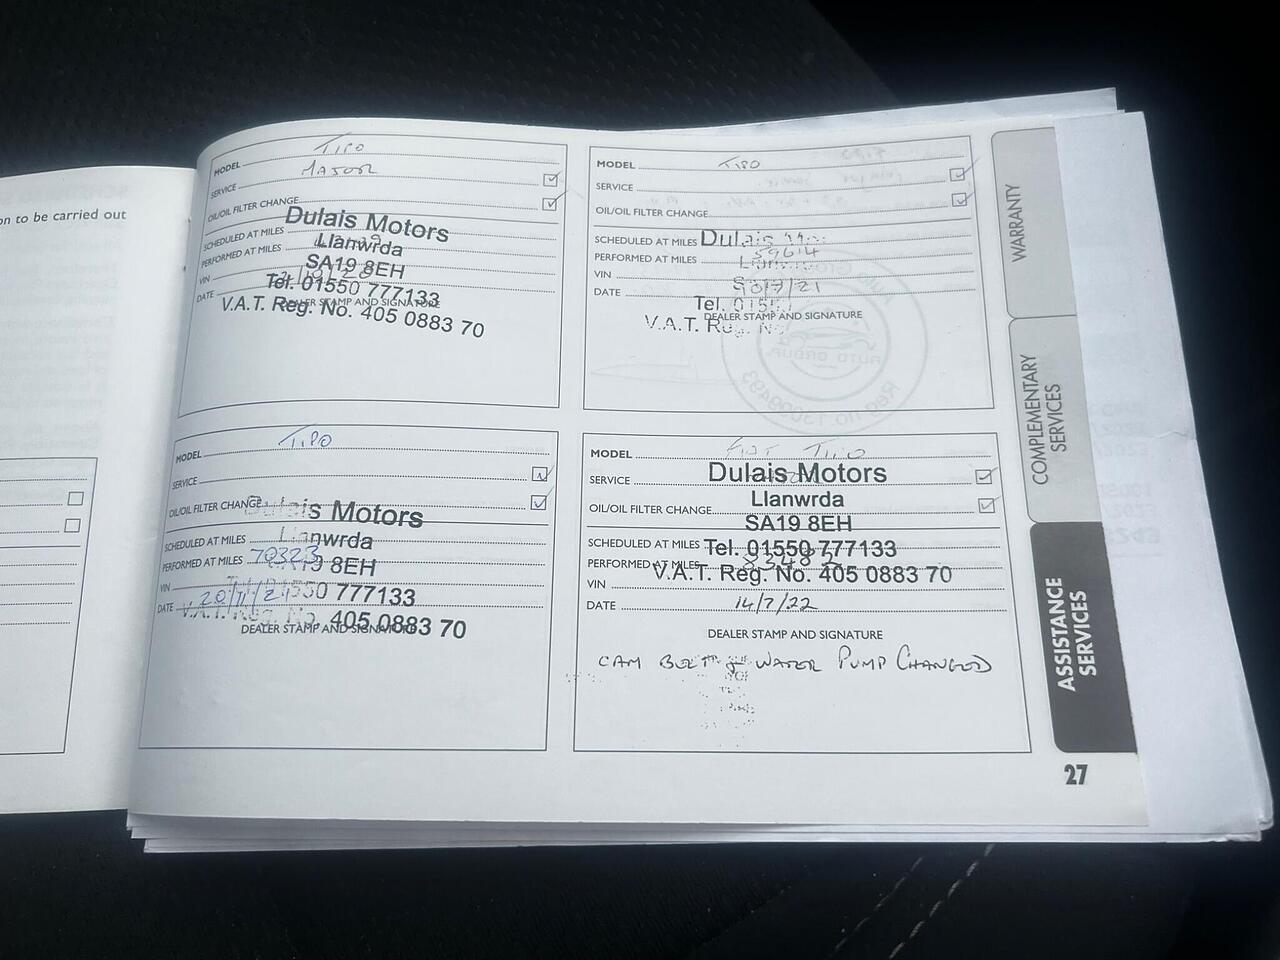 on to be carried out
MODEL TIPO
SERVICE MAJOR
OIL/OIL FILTER CHANGE
Dulais Motors
Llanwrda
SA19 8EH
Tel. 01550 777133
V.A.T. Reg. No. 405 0883 70
SCHEDULED AT MILES
PERFORMED AT MILES
VIN
DATE
DEALER STAMP AND SIGNATURE
MODEL TIPO
SERVICE
OIL/OIL FILTER CHANGE
SCHEDULED AT MILES Dulais
PERFORMED AT MILES 59614
VIN
DATE
Tel.
DEALER STAMP AND SIGNATURE
V.A.T.
MODEL TIPO
SERVICE
OIL/OIL FILTER CHANGE
Dulais Motors
Llanwrda
SCHEDULED AT MILES
PERFORMED AT MILES 70323
8EH
VIN
777133
DATE 20/11/21
405 0883 70
DEALER STAMP AND SIGNATURE
MODEL FIAT TIPO
SERVICE
Dulais Motors
Llanwrda
OIL/OIL FILTER CHANGE
SA19 8EH
SCHEDULED AT MILES
Tel. 01550 777133
PERFORMED AT MILES 83482
V.A.T. Reg. No. 405 0883 70
VIN
DATE 14/7/22
DEALER STAMP AND SIGNATURE
CAM BELT & WATER PUMP CHANGED
WARRANTY
COMPLEMENTARY
SERVICES
ASSISTANCE
SERVICES
27